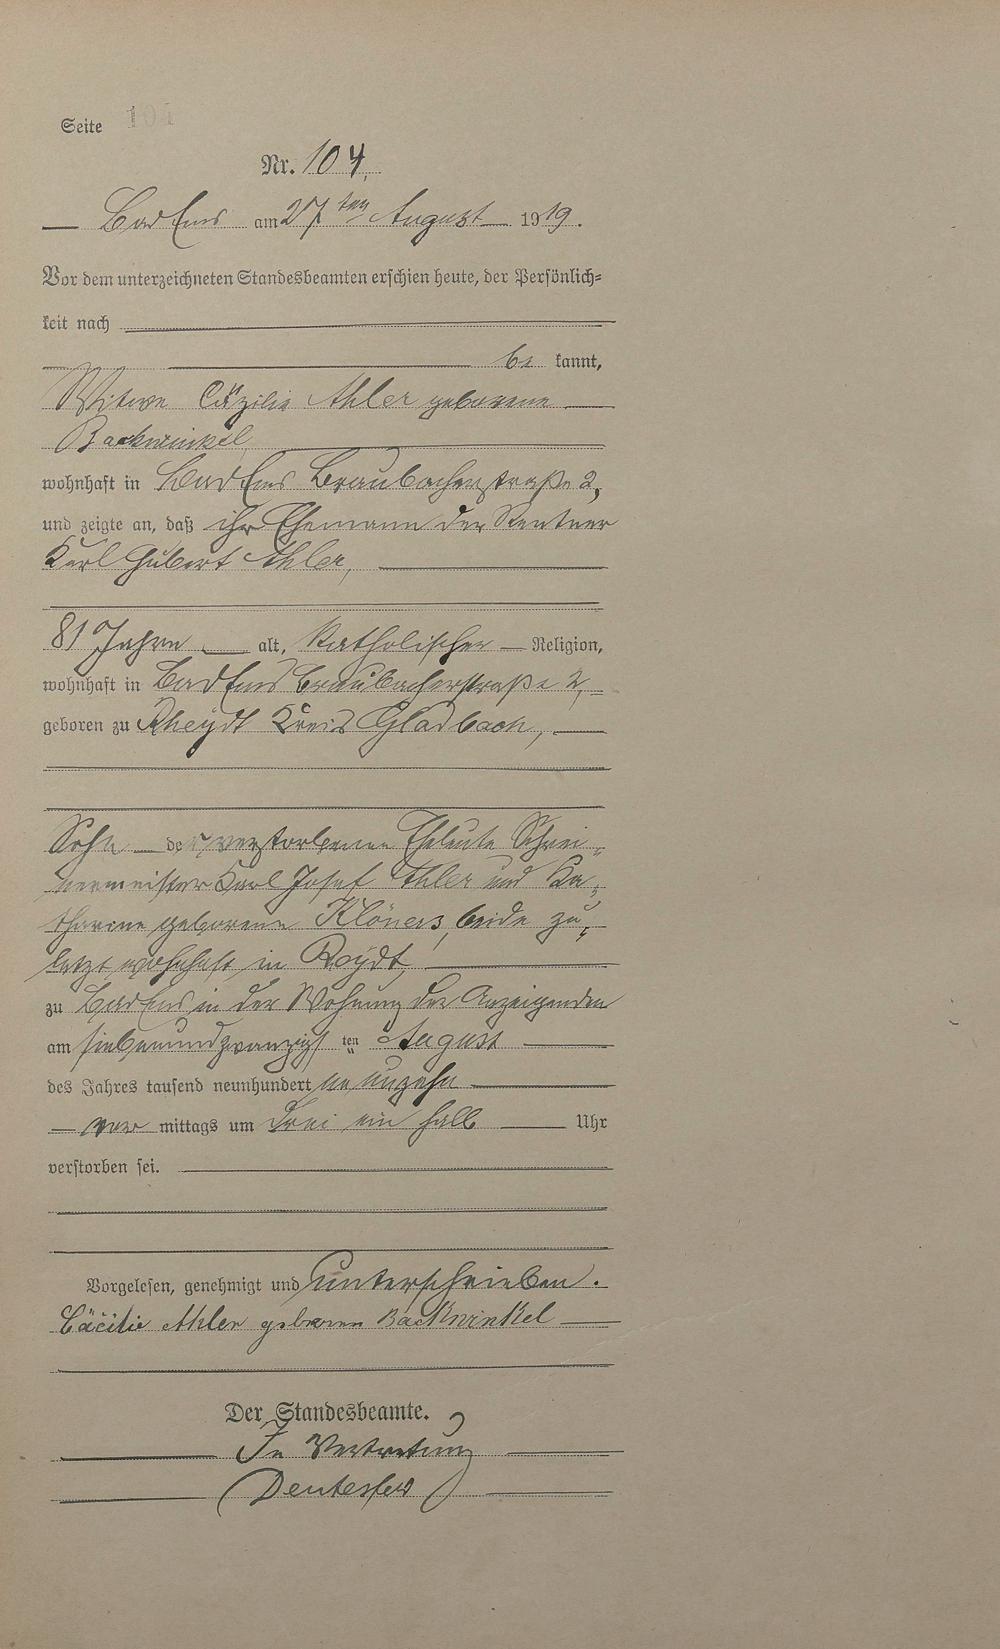 Seite 101
Nr. 104.
Bad Ems am 27ten August 1919.
Vor dem unterzeichneten Standesbeamten erschien heute, der Persönlich-
keit nach
be kannt,
Witwe Cäzilie Ahler geborene
Backwinkel
wohnhaft in Bad Ems Braubacherstraße 2,
und zeigte an, daß ihr Ehemann der Rentner
Karl Hubert Ahler,
81 Jahre alt, katholischer Religion,
wohnhaft in Bad Ems Braubacherstraße 2,
geboren zu Rheydt Kreis Gladbach,
Sohn der verstorbenen Eheleute Schrei-
nermeister Karl Josef Ahler und Ka-
tharine geborene Klöners, beide zu-
letzt wohnhaft in Reydt,
zu Bad Ems in der Wohnung der Anzeigenden
am siebenundzwanzig ten August
des Jahres tausend neunhundert neunzehn
vor mittags um drei ein halb Uhr
verstorben sei.
Vorgelesen, genehmigt und unterschrieben.
Cäcilie Ahler geboren Backwinkel
Der Standesbeamte.
In Vertretung